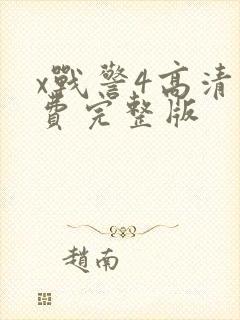 x戰警4高清
費完整版
趙南